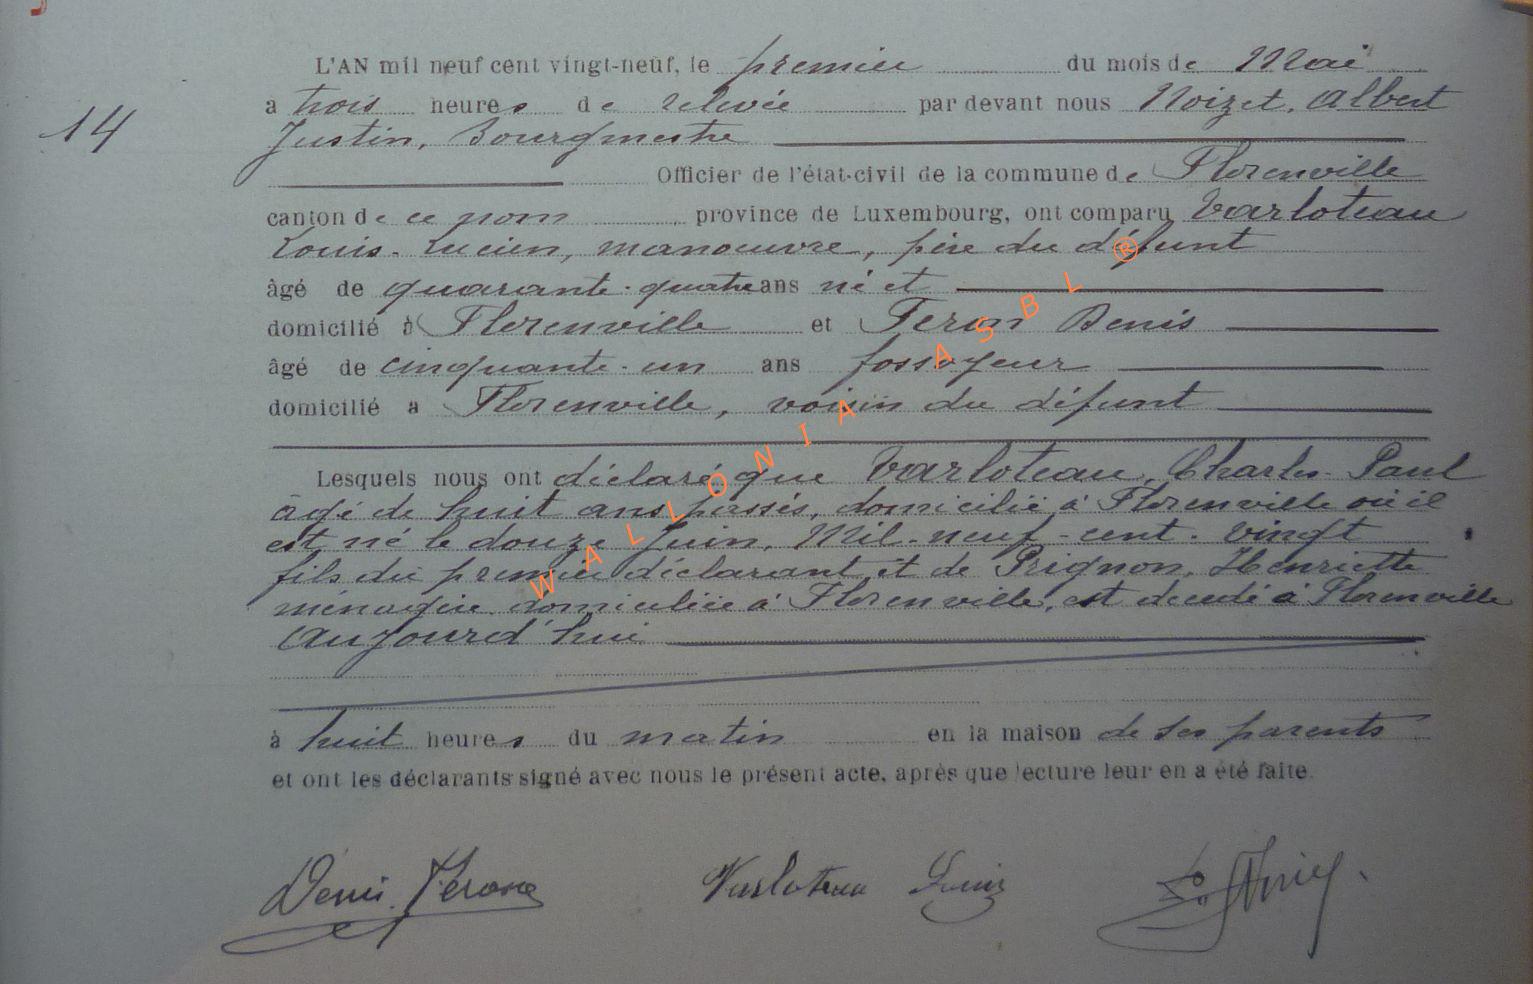 14
L'AN mil neuf cent vingt-neuf, le premier du mois de Mai
a trois heures de relevée par devant nous Noizet, Albert
Justin, Bourgmestre
Officier de l'état-civil de la commune de Florenville
canton de ce nom province de Luxembourg, ont comparu Varloteau
Louis-Lucien, manoeuvre, père du défunt
âgé de quarante-quatre ans né et
domicilié à Florenville et Feron Denis
âgé de cinquante-un ans fossoyeur
domicilié a Florenville, voisin du défunt
Lesquels nous ont déclaré que Varloteau, Charles-Paul
âgé de huit ans passés, domicilié à Florenville où il
est né le douze Juin, Mil-neuf-cent-vingt
fils du premier déclarant et de Prignon, Henriette
ménagère domiciliée à Florenville, est décédé à Florenville
aujourd'hui
à huit heures du matin en la maison de ses parents
et ont les déclarants signé avec nous le présent acte, après que lecture leur en a été faite.
Denis Feron Varloteau Louis
WALLONIA ASBL ®